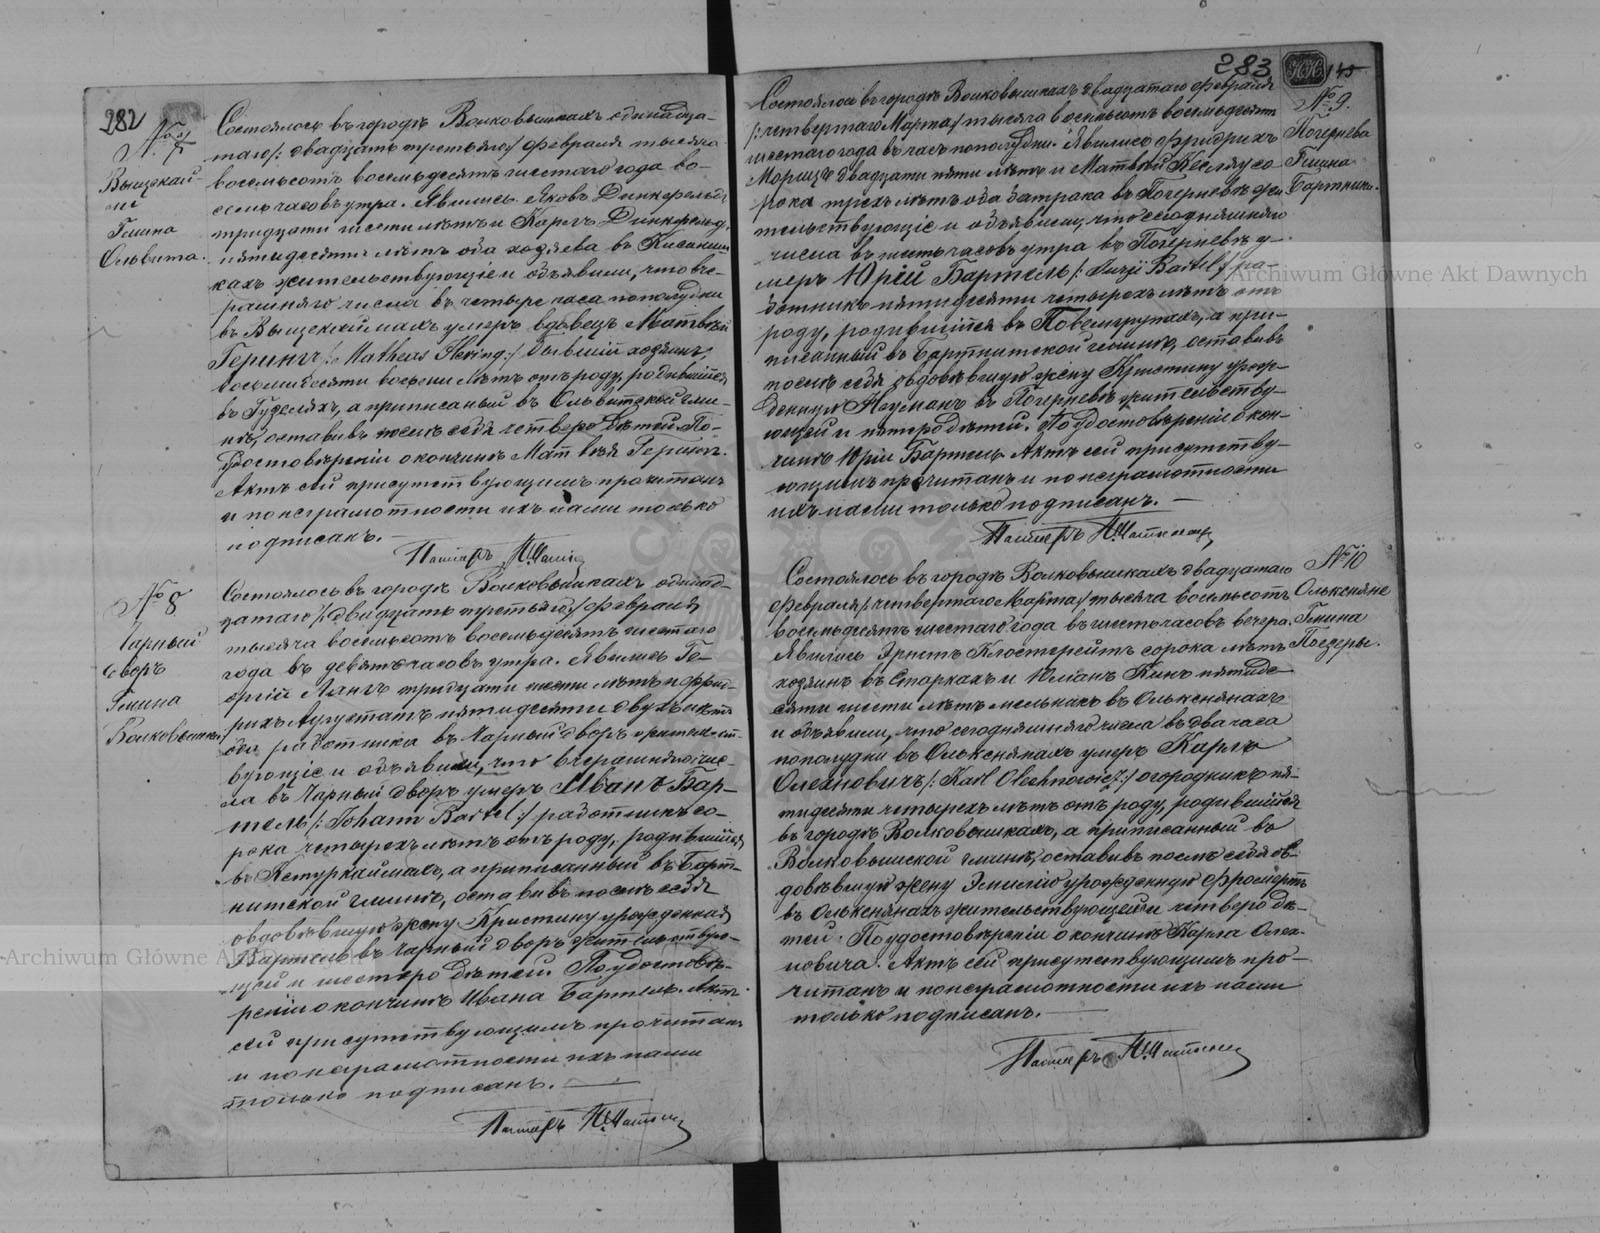 282
№ 7
Вышскай
ме
Гмина
Ольвита.
Состоялось въ городѣ Волковышкахъ одиннадца-
таго /: двадцать третьяго :/ февраля тысяча
восемьсотъ восемьдесятъ шестаго года во-
семь часовъ утра. Явились Яковъ Динкфельдъ
тридцати шести лѣтъ и Карлъ Динкфельд,
пятидесяти лѣтъ оба хозяева въ
кахъ жительствующіе и объявили, что вче-
рашняго числа въ четыре часа пополудни
въ Вышскаймахъ умеръ вдовецъ Матвѣй
Герингъ /: Matheas Hering :/ бывшій хозяинъ,
восьмидесяти восьми лѣтъ отъ роду, родившійся
въ Гуделяхъ, а приписанный въ Ольвитской гми-
нѣ, оставивъ послѣ себя четверо дѣтей. По-
удостовѣреніи о кончинѣ Матвѣя Герингъ.
Актъ сей присутствующимъ прочитанъ
и по неграмотности ихъ нами только
подписанъ.
Пасторъ
№ 8
Чарный
дворъ
Гмина
Волковышки
Состоялось въ городѣ Волковышкахъ одиннад-
цатаго /: двадцать третьяго :/ февраля
тысяча восемьсотъ восемьдесятъ шестаго
года въ девять часовъ утра. Явились Ге-
оргій Лангъ тридцати шести лѣтъ и Фрид-
рихъ Аугустатъ пятидесяти двухъ лѣтъ
оба работника въ Чарный дворъ жительст-
вующіе и объявили, что вчерашняго чис-
ла въ Чарный дворъ умеръ Иванъ Бар-
тель /: Johann Bartel :/ работникъ со-
рока четырехъ лѣтъ отъ роду, родившійся
въ Кетуркаймахъ, а приписанный въ Барт-
нитской гминѣ, оставивъ послѣ себя
овдовѣвшую жену Кристину урожденная
Бартель въ Чарный дворъ жительствую-
щей и шестеро дѣтей. По удостовѣ-
реніи о кончинѣ Ивана Бартель. Актъ
сей присутствующимъ прочитанъ
и по неграмотности ихъ нами
только подписанъ.
Пасторъ
283
145
№ 9.
Погернева
Гмина
Бартники.
Состоялось въ городѣ Волковышкахъ двадцатаго февраля
/: четвертаго Марта :/ тысяча восемьсотъ восемьдесятъ
шестаго года въ часъ пополудни. Явились Фридрихъ
Морицъ двадцати пяти лѣтъ и Матвѣй со-
рока трехъ лѣтъ оба батрака въ Погерневѣ жи-
тельствующіе и объявили, что сегодняшняго
числа въ пять часовъ утра въ Погерневѣ у-
меръ Юрій Бартель /: Jurji Bartel :/ ра-
ботникъ пятидесяти четырехъ лѣтъ отъ
роду, родившійся въ а при-
писанный въ Бартнитской гминѣ, оставивъ
послѣ себя овдовѣвшую жену Кристину урож-
денную Неуманъ въ Погерневѣ жительству-
ющей и пятеро дѣтей. По удостовѣреніи о кон-
чинѣ Юрія Бартель. Актъ сей присутству-
ющимъ прочитанъ и по неграмотности
ихъ нами только подписанъ.
Пасторъ
№ 10
Олькеняне
Гмина
Поезеры.
Состоялось въ городѣ Волковышкахъ двадцатаго
февраля /: четвертаго Марта :/ тысяча восемьсотъ
восемьдесятъ шестаго года въ шесть часовъ вечера.
Явились Эрнстъ Клостерейтъ сорока лѣтъ
хозяинъ въ Старкахъ и Юліанъ Кинъ пятиде-
сяти шести лѣтъ мельникъ въ Олькснянахъ
и объявили, что сегодняшняго числа въ два часа
пополудни въ Олькснянахъ умеръ Карлъ
Олехновичъ /: Karl Olechnowicz :/ огородникъ пя-
тидесяти четырехъ лѣтъ отъ роду, родившійся
въ городѣ Волковышкахъ, а приписанный въ
Волковышской гминѣ, оставивъ послѣ себя ов-
довѣвшую жену Эмилію урожденную Фромертъ
въ Олькснянахъ жительствующей и четверо дѣ-
тей. По удостовѣреніи о кончинѣ Карла Олех-
новича. Актъ сей присутствующимъ про-
читанъ и по неграмотности ихъ нами
только подписанъ.
Пасторъ
Archiwum Główne Akt Dawnych
Archiwum Główne Ak